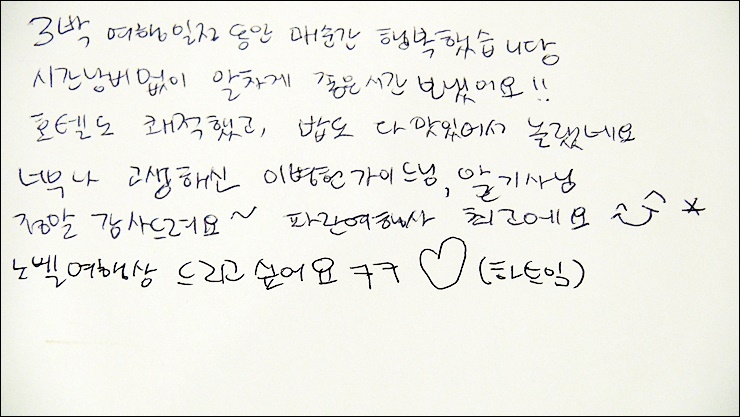 3박 여행일정 동안 매순간 행복했습니당
시간낭비 없이 알차게 좋은시간 보냈어요!!
호텔도 쾌적했고, 밥도 다 맛있어서 놀랬네요
너무나 고생해신 이병헌가이드님, 알기사님
정말 감사드려요~ 파란여행사 최고에요 ^ᴗ^ *
노벨여행상 드리고 싶어요 ㅋㅋ ♡ (하트임)